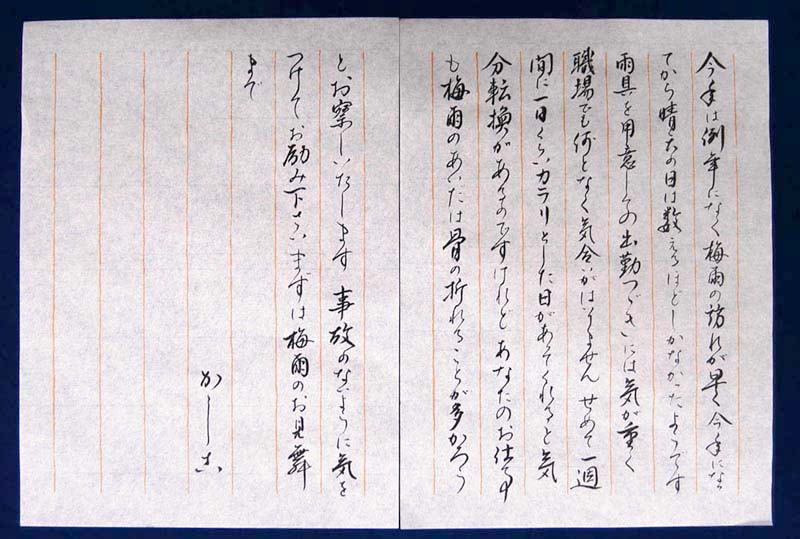 今年は例年になく梅雨の訪れが早く今年になっ
てから晴天の日は数えるほどしかなかったようです
雨具を用意しての出勤つづきには気が重く
職場でも何となく気合がはいりません せめて一週
間に一日くらいカラリとした日があってくれると気
分転換があるのですけれど あなたのお仕事
も梅雨のあいだは骨の折れることが多かろう
とお察しいたします 事故のないように気を
つけてお励み下さいまずは梅雨のお見舞
まで
かしこ